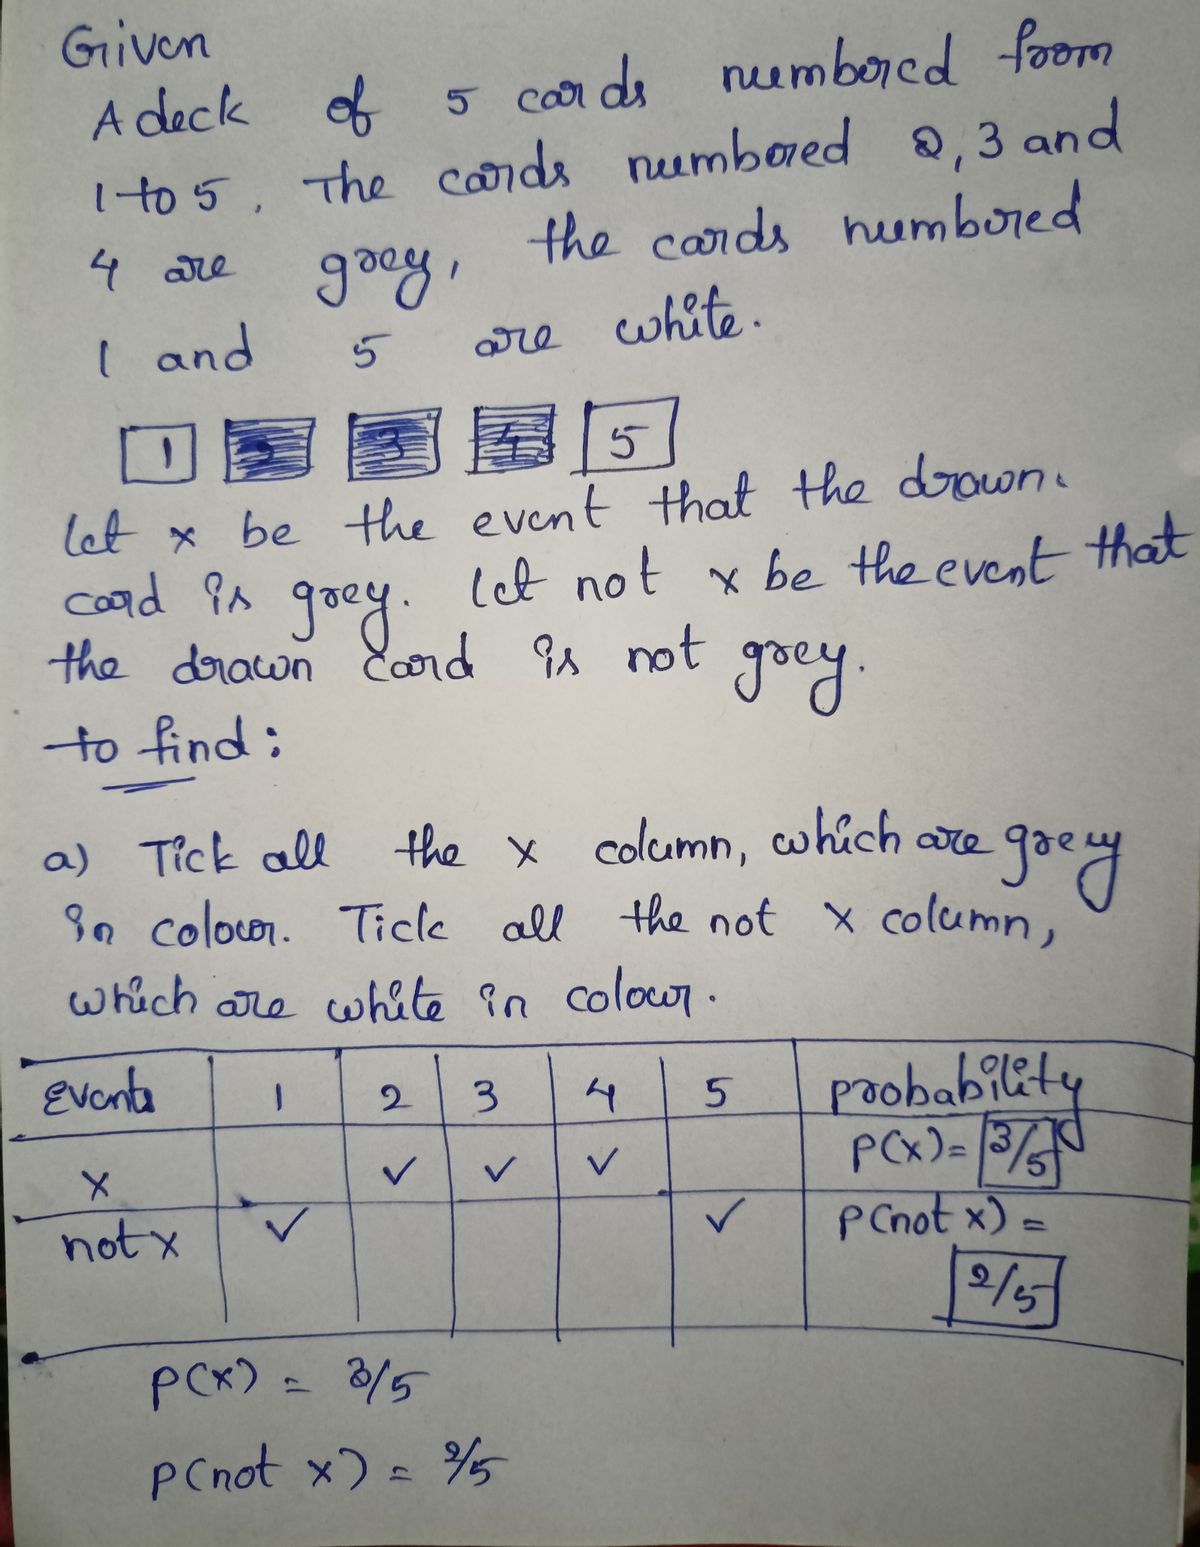 Given
A deck of 5 cards numbered from
1 to 5. The cards numbered 2, 3 and
4 are grey, the cards numbered
1 and 5 are white.
1 2 3 4 5
let x be the event that the drawn.
card is grey. let not x be the event that
the drawn card is not grey.
to find:
a) Tick all the x column, which are grey
in colour. Tick all the not x column,
which are white in colour.
Events 1 2 3 4 5 probability
x ✓ ✓ ✓ P(x)= 3/5
not x ✓ ✓ P(not x) =
2/5
P(x) = 3/5
P(not x) = 2/5